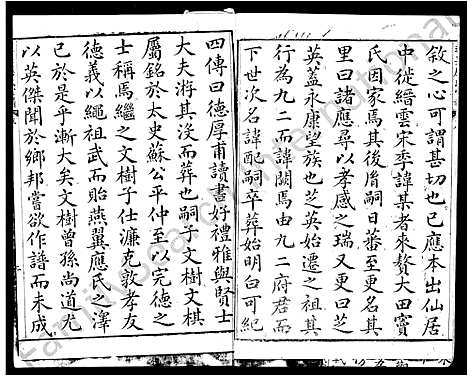 敘之心可謂甚切也已應本出仙居
中從縉雲宋季諱某者來贅大田竇
氏因家焉其後胤嗣日蕃至更名其
里曰諸應尋以孝感之瑞又更曰芝
英蓋永康望族也芝英始遷之祖其
行為九二而諱闕焉由九二府君而
下世次名諱配嗣卒葬始明白可紀
四傳曰德厚甫讀書好禮雅與賢士
大夫游其沒而葬也嗣子文樹文棋
屬銘於太史蘇公平仲至以完德之
士稱焉繼之文樹子仕濂克敦孝友
德義以繩祖武而貽燕翼應氏之澤
已於是乎漸大矣文樹曾孫尚道尤
以英傑聞於鄉邦嘗欲作譜而未成